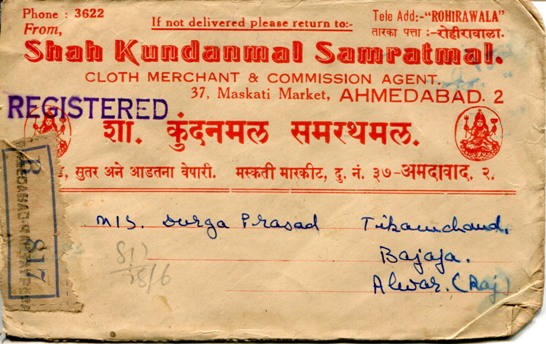 Phone : 3622
If not delivered please return to:-
Tele Add:-"ROHIRAWALA"
तारका पत्ता :-रोहीरावाला.
From,
Shah Kundanmal Samratmal.
CLOTH MERCHANT & COMMISSION AGENT.
37, Maskati Market, AHMEDABAD. 2
REGISTERED
शा. कुंदनमल समरथमल.
सुतर अने आडतना वेपारी. मस्कती मारकीट, दु. नं. ३७-अमदावाद. २.
R
817
M/S. Durga Prasad Tikamchand,
Bajaja.
Alwar. (Raj)
817
28/6